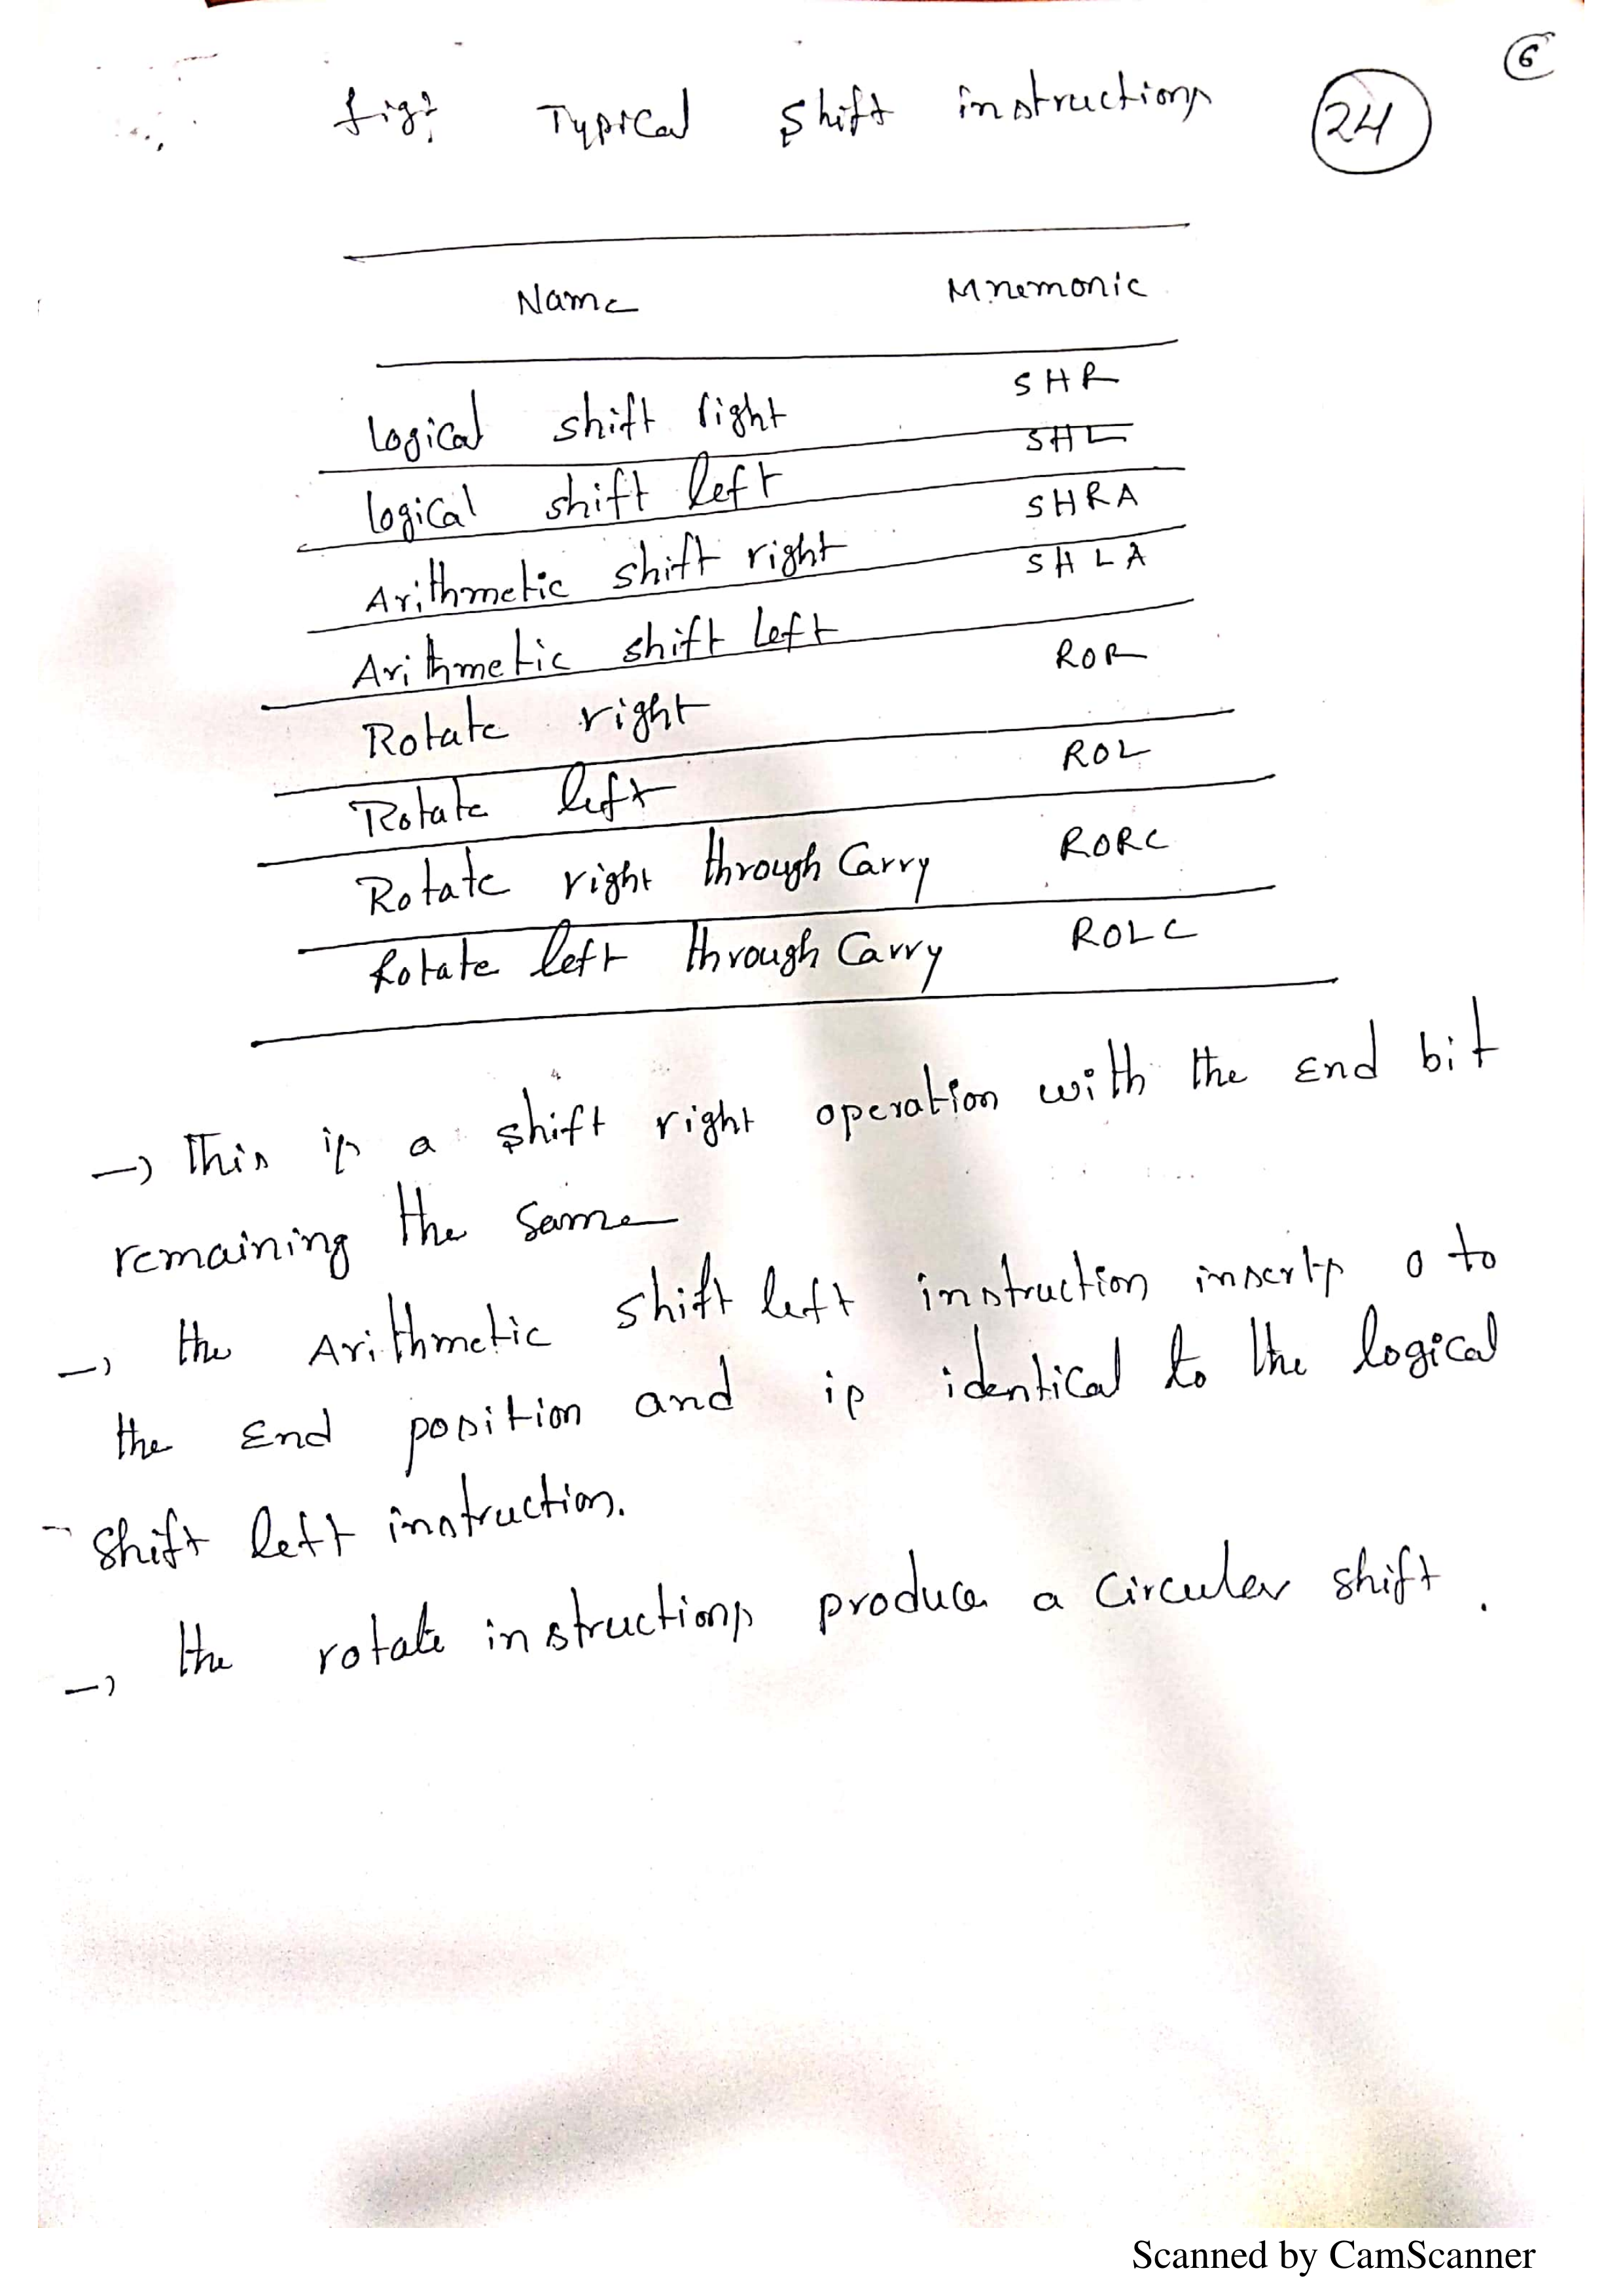 6
fig: Typical shift instructions 24
Name Mnemonic
Logical shift right SHR
logical shift left SHL
Arithmetic shift right SHRA
Arithmetic shift left SHLA
Rotate right ROR
Rotate left ROL
Rotate right through Carry RORC
Rotate left through Carry ROLC
→ This is a shift right operation with the End bit
remaining the same
→ the Arithmetic shift left instruction inserts 0 to
the End position and is identical to the logical
shift left instruction.
→ the rotate instructions produce a Circular shift.
Scanned by CamScanner